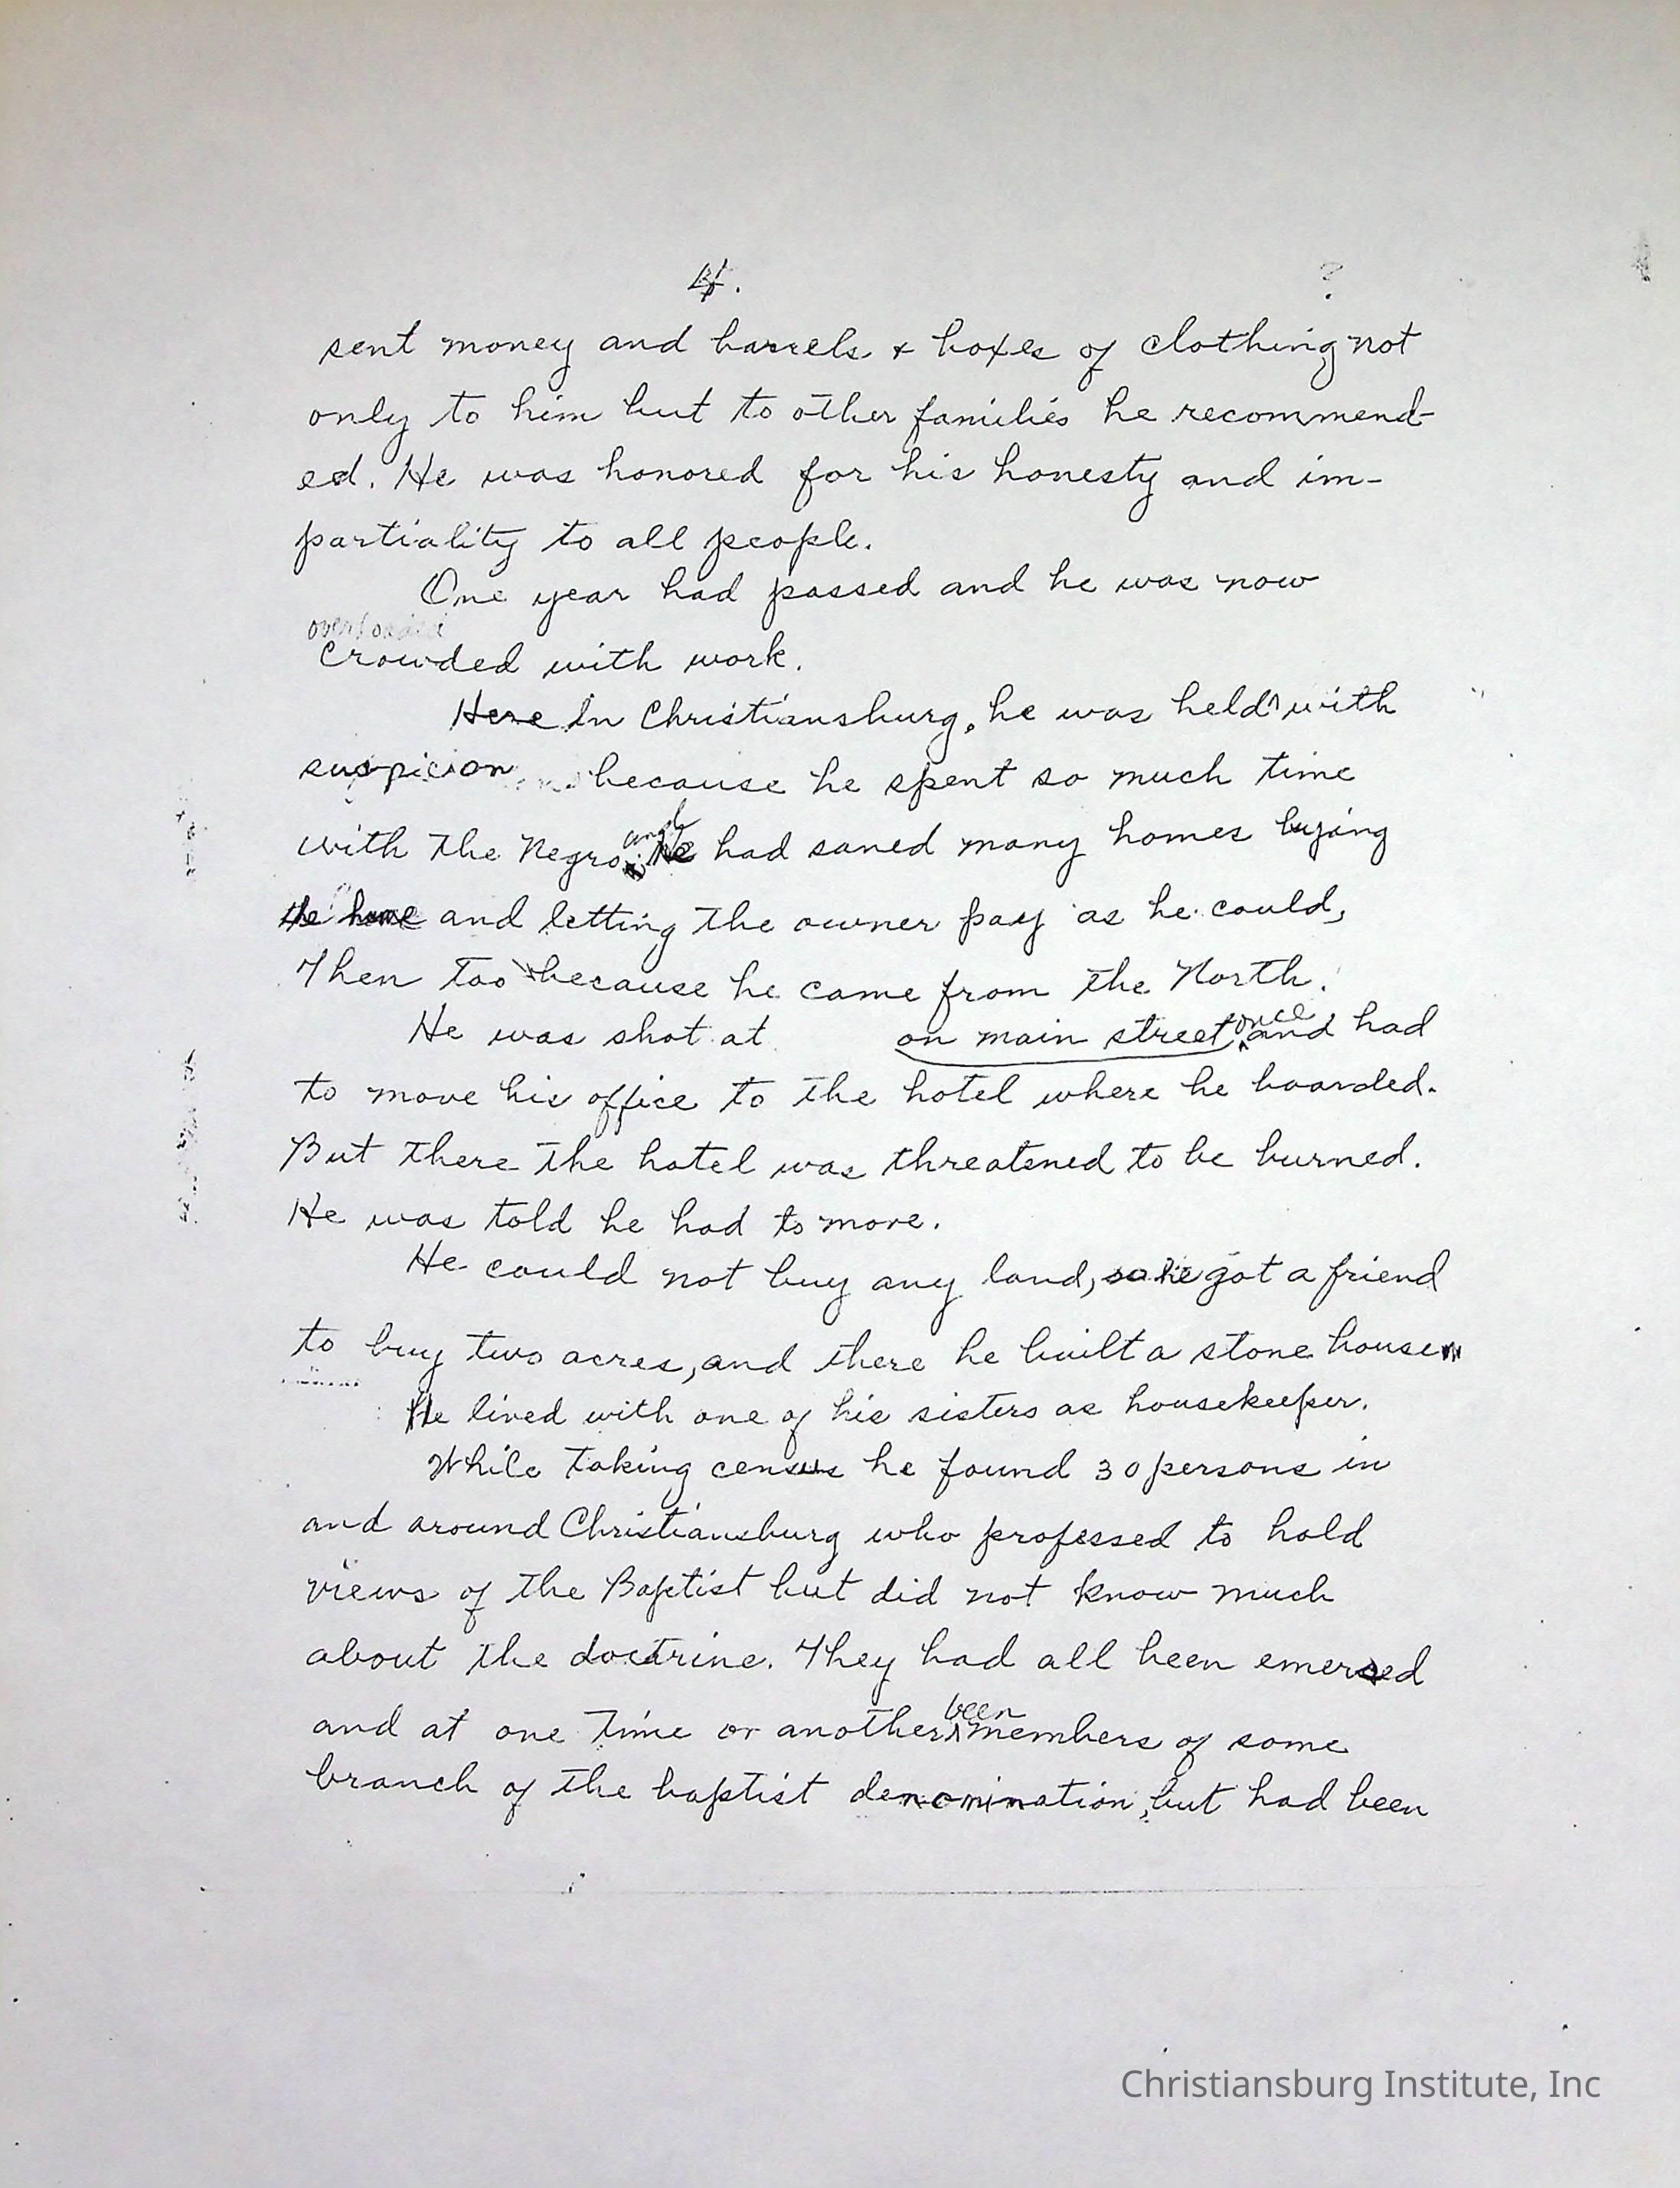 4.
?
sent money and barrels & boxes of clothing not
only to him but to other families he recommend-
ed. He was honored for his honesty and im-
partiality to all people.
One year had passed and he was now
overloaded
crowded with work.
Here In Christiansburg, he was held with
suspicion because he spent so much time
with the Negro and he had saved many homes buying
the home and letting the owner pay as he could,
Then too because he came from the North.
He was shot at on main street once and had
to move his office to the hotel where he boarded.
But there the hotel was threatened to be burned.
He was told he had to move.
He could not buy any land, so he got a friend
to buy two acres, and there he built a stone house
He lived with one of his sisters as housekeeper.
While taking census he found 30 persons in
and around Christiansburg who professed to hold
views of the Baptist but did not know much
about the doctrine. They had all been emersed
and at one time or another been members of some
branch of the baptist denomination, but had been
Christiansburg Institute, Inc